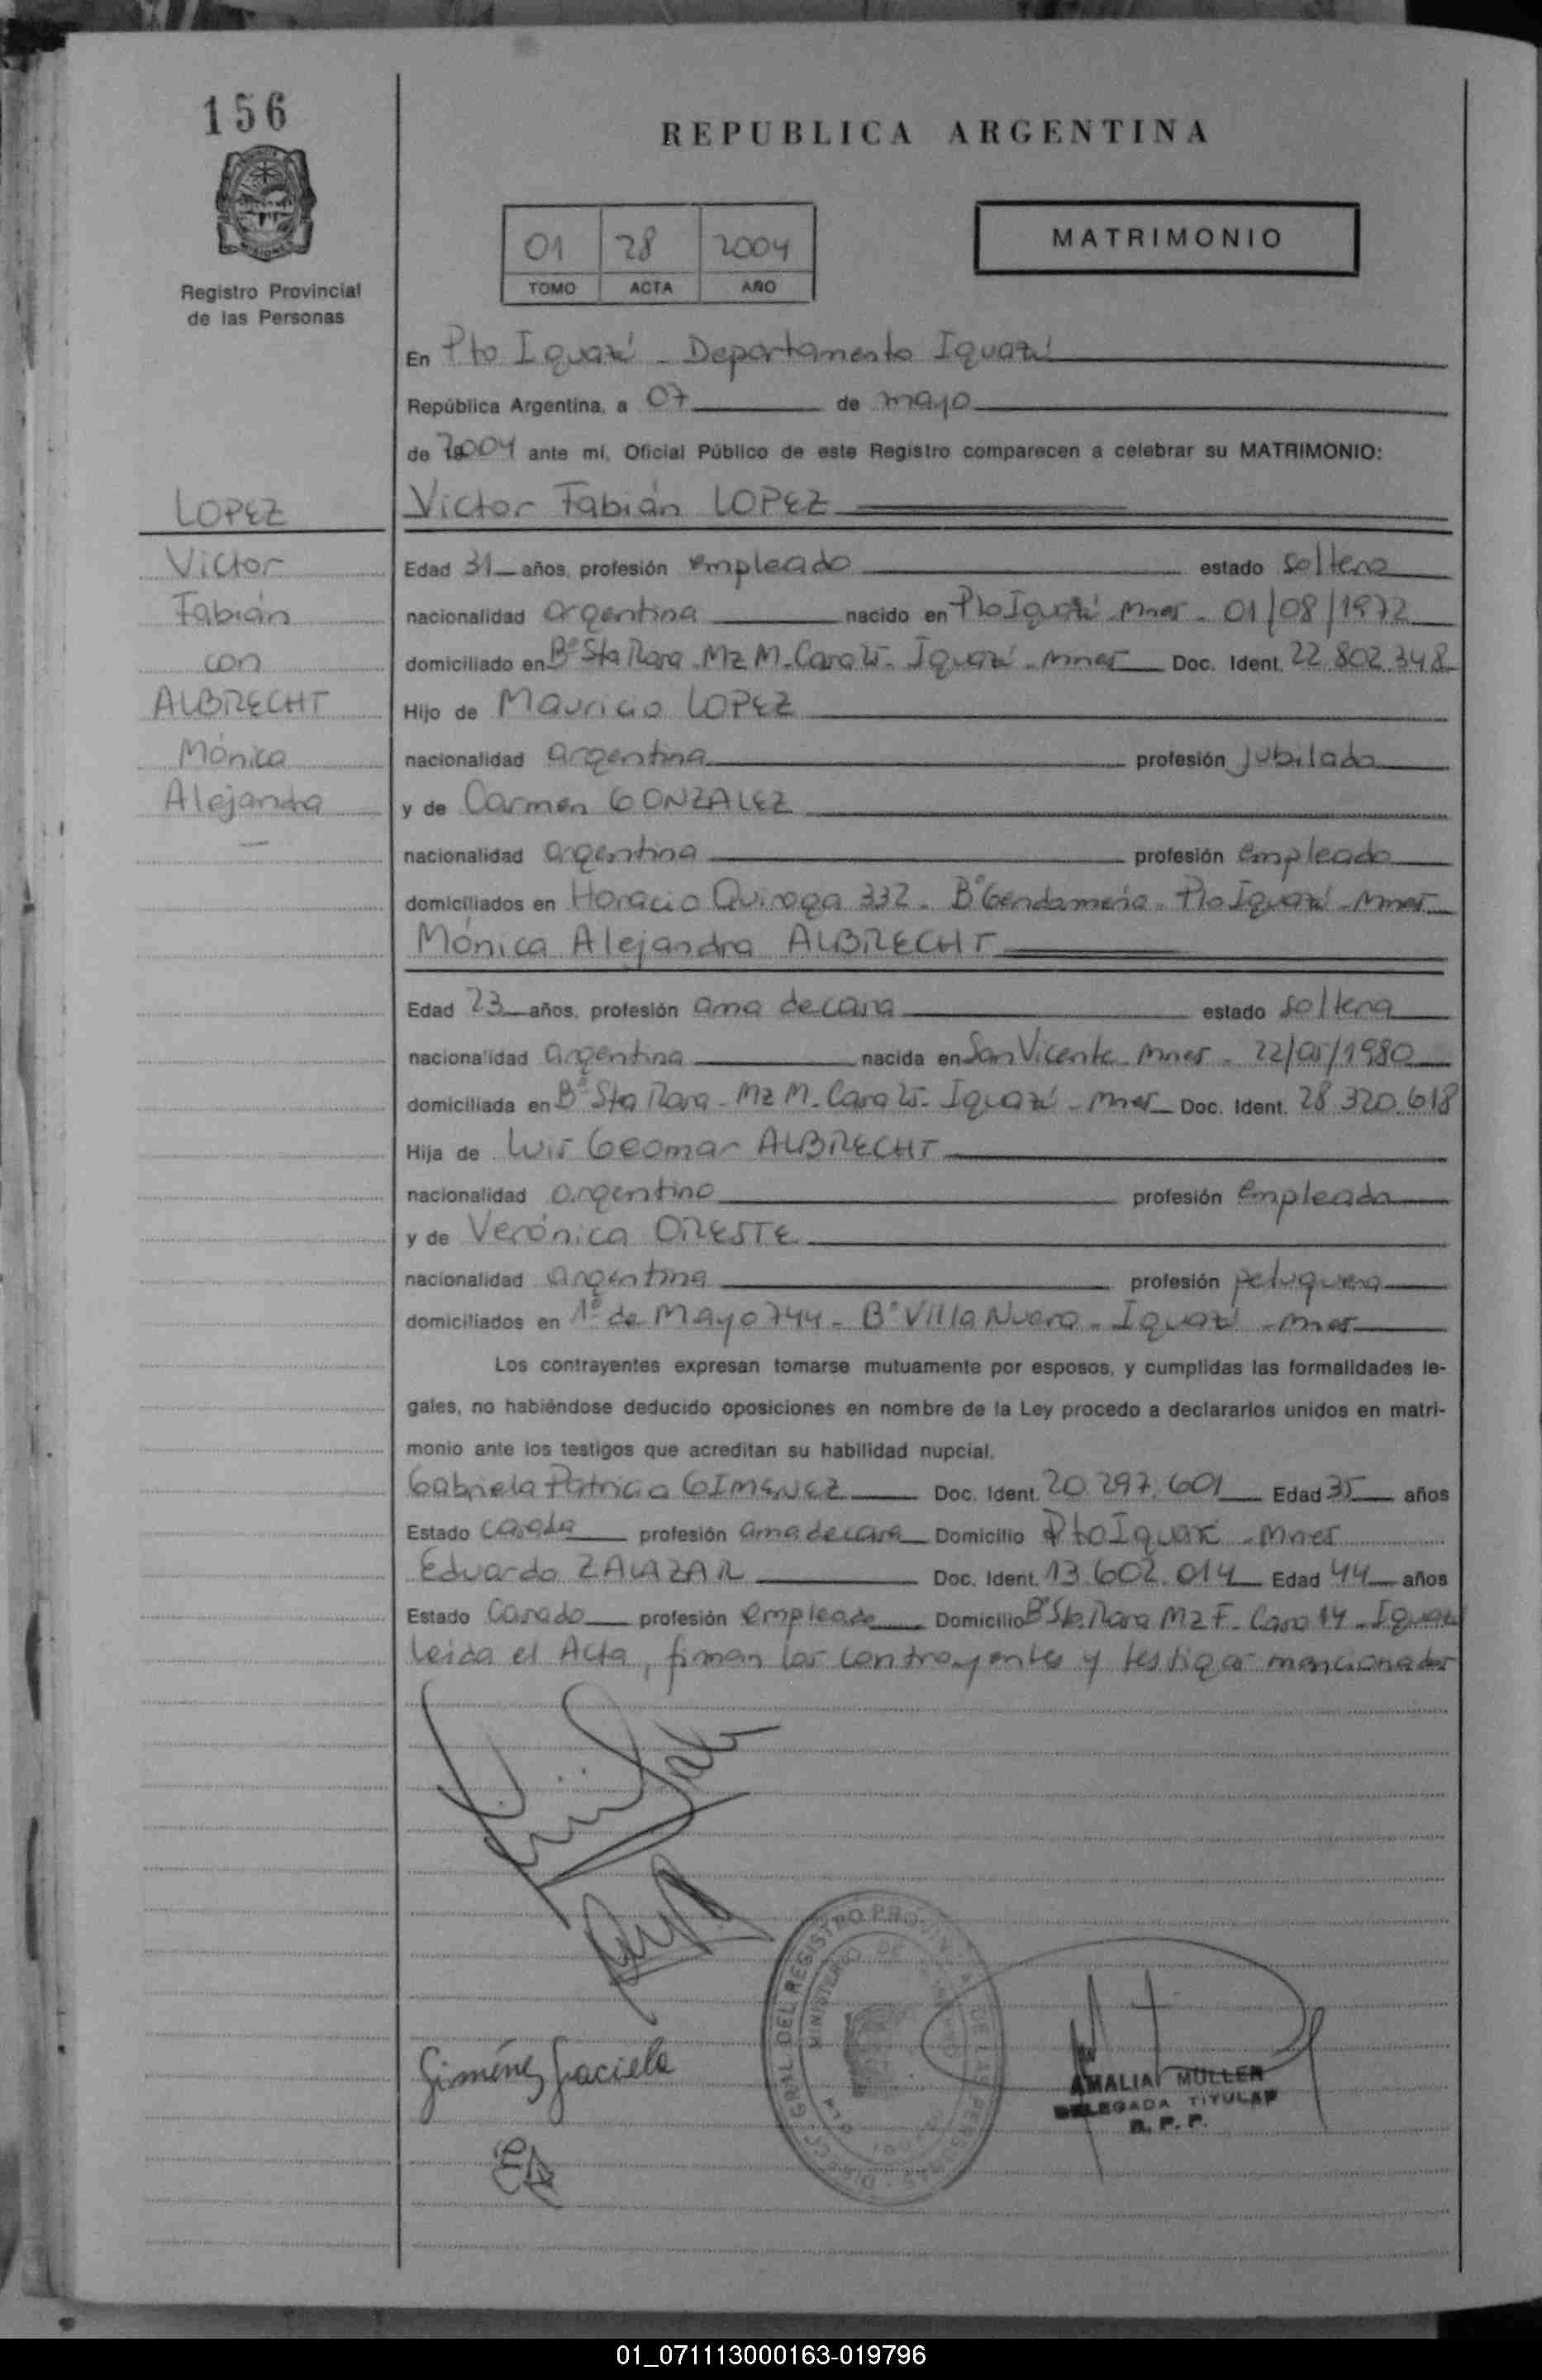 156
REPUBLICA ARGENTINA
01 28 2004
TOMO ACTA AÑO
MATRIMONIO
Registro Provincial
de las Personas
En Pto Iguazú - Departamento Iguazú
República Argentina, a 07 de mayo
de 2004 ante mí, Oficial Público de este Registro comparecen a celebrar su MATRIMONIO:
LOPEZ
Victor
Fabián
con
ALBRECHT
Mónica
Alejandra
Victor Fabián LOPEZ
Edad 31 años, profesión empleado estado soltero
nacionalidad argentina nacido en Pto Iguazú Mnes - 01/08/1972
domiciliado en Bº Sta Rosa - Mz M - Casa - Iguazú - Mnes Doc. Ident. 22.802.348
Hijo de Mauricio LOPEZ
nacionalidad argentina profesión jubilado
y de Carmen GONZALEZ
nacionalidad argentina profesión empleado
domiciliados en Horacio Quiroga 332 - Bº Gendarmería - Pto Iguazú - Mnes
Mónica Alejandra ALBRECHT
Edad 23 años, profesión ama de casa estado soltera
nacionalidad argentina nacida en San Vicente - Mnes - 22/05/1980
domiciliada en Bº Sta Rosa - Mz M - Casa - Iguazú - Mnes Doc. Ident. 28.320.618
Hija de Luis Geomar ALBRECHT
nacionalidad argentino profesión empleado
y de Verónica ORESTE
nacionalidad argentina profesión peluquera
domiciliados en 1º de Mayo 744 - Bº Villa Nueva - Iguazú - Mnes
Los contrayentes expresan tomarse mutuamente por esposos, y cumplidas las formalidades le-
gales, no habiéndose deducido oposiciones en nombre de la Ley procedo a declararlos unidos en matri-
monio ante los testigos que acreditan su habilidad nupcial.
Gabriela Patricia GIMENEZ Doc. Ident. 20.297.601 Edad 35 años
Estado casada profesión ama de casa Domicilio Pto Iguazú - Mnes
Eduardo ZALAZAR Doc. Ident. 13.602.014 Edad 44 años
Estado Casado profesión empleado Domicilio Bº Sta. Rosa Mz F - Casa 14 - Iguazú
Leída el Acta, firman los contrayentes y testigos mencionados
Giménez Graciela
AMALIA MULLER
DELEGADA TITULAR
R. P. P.
01_071113000163-019796